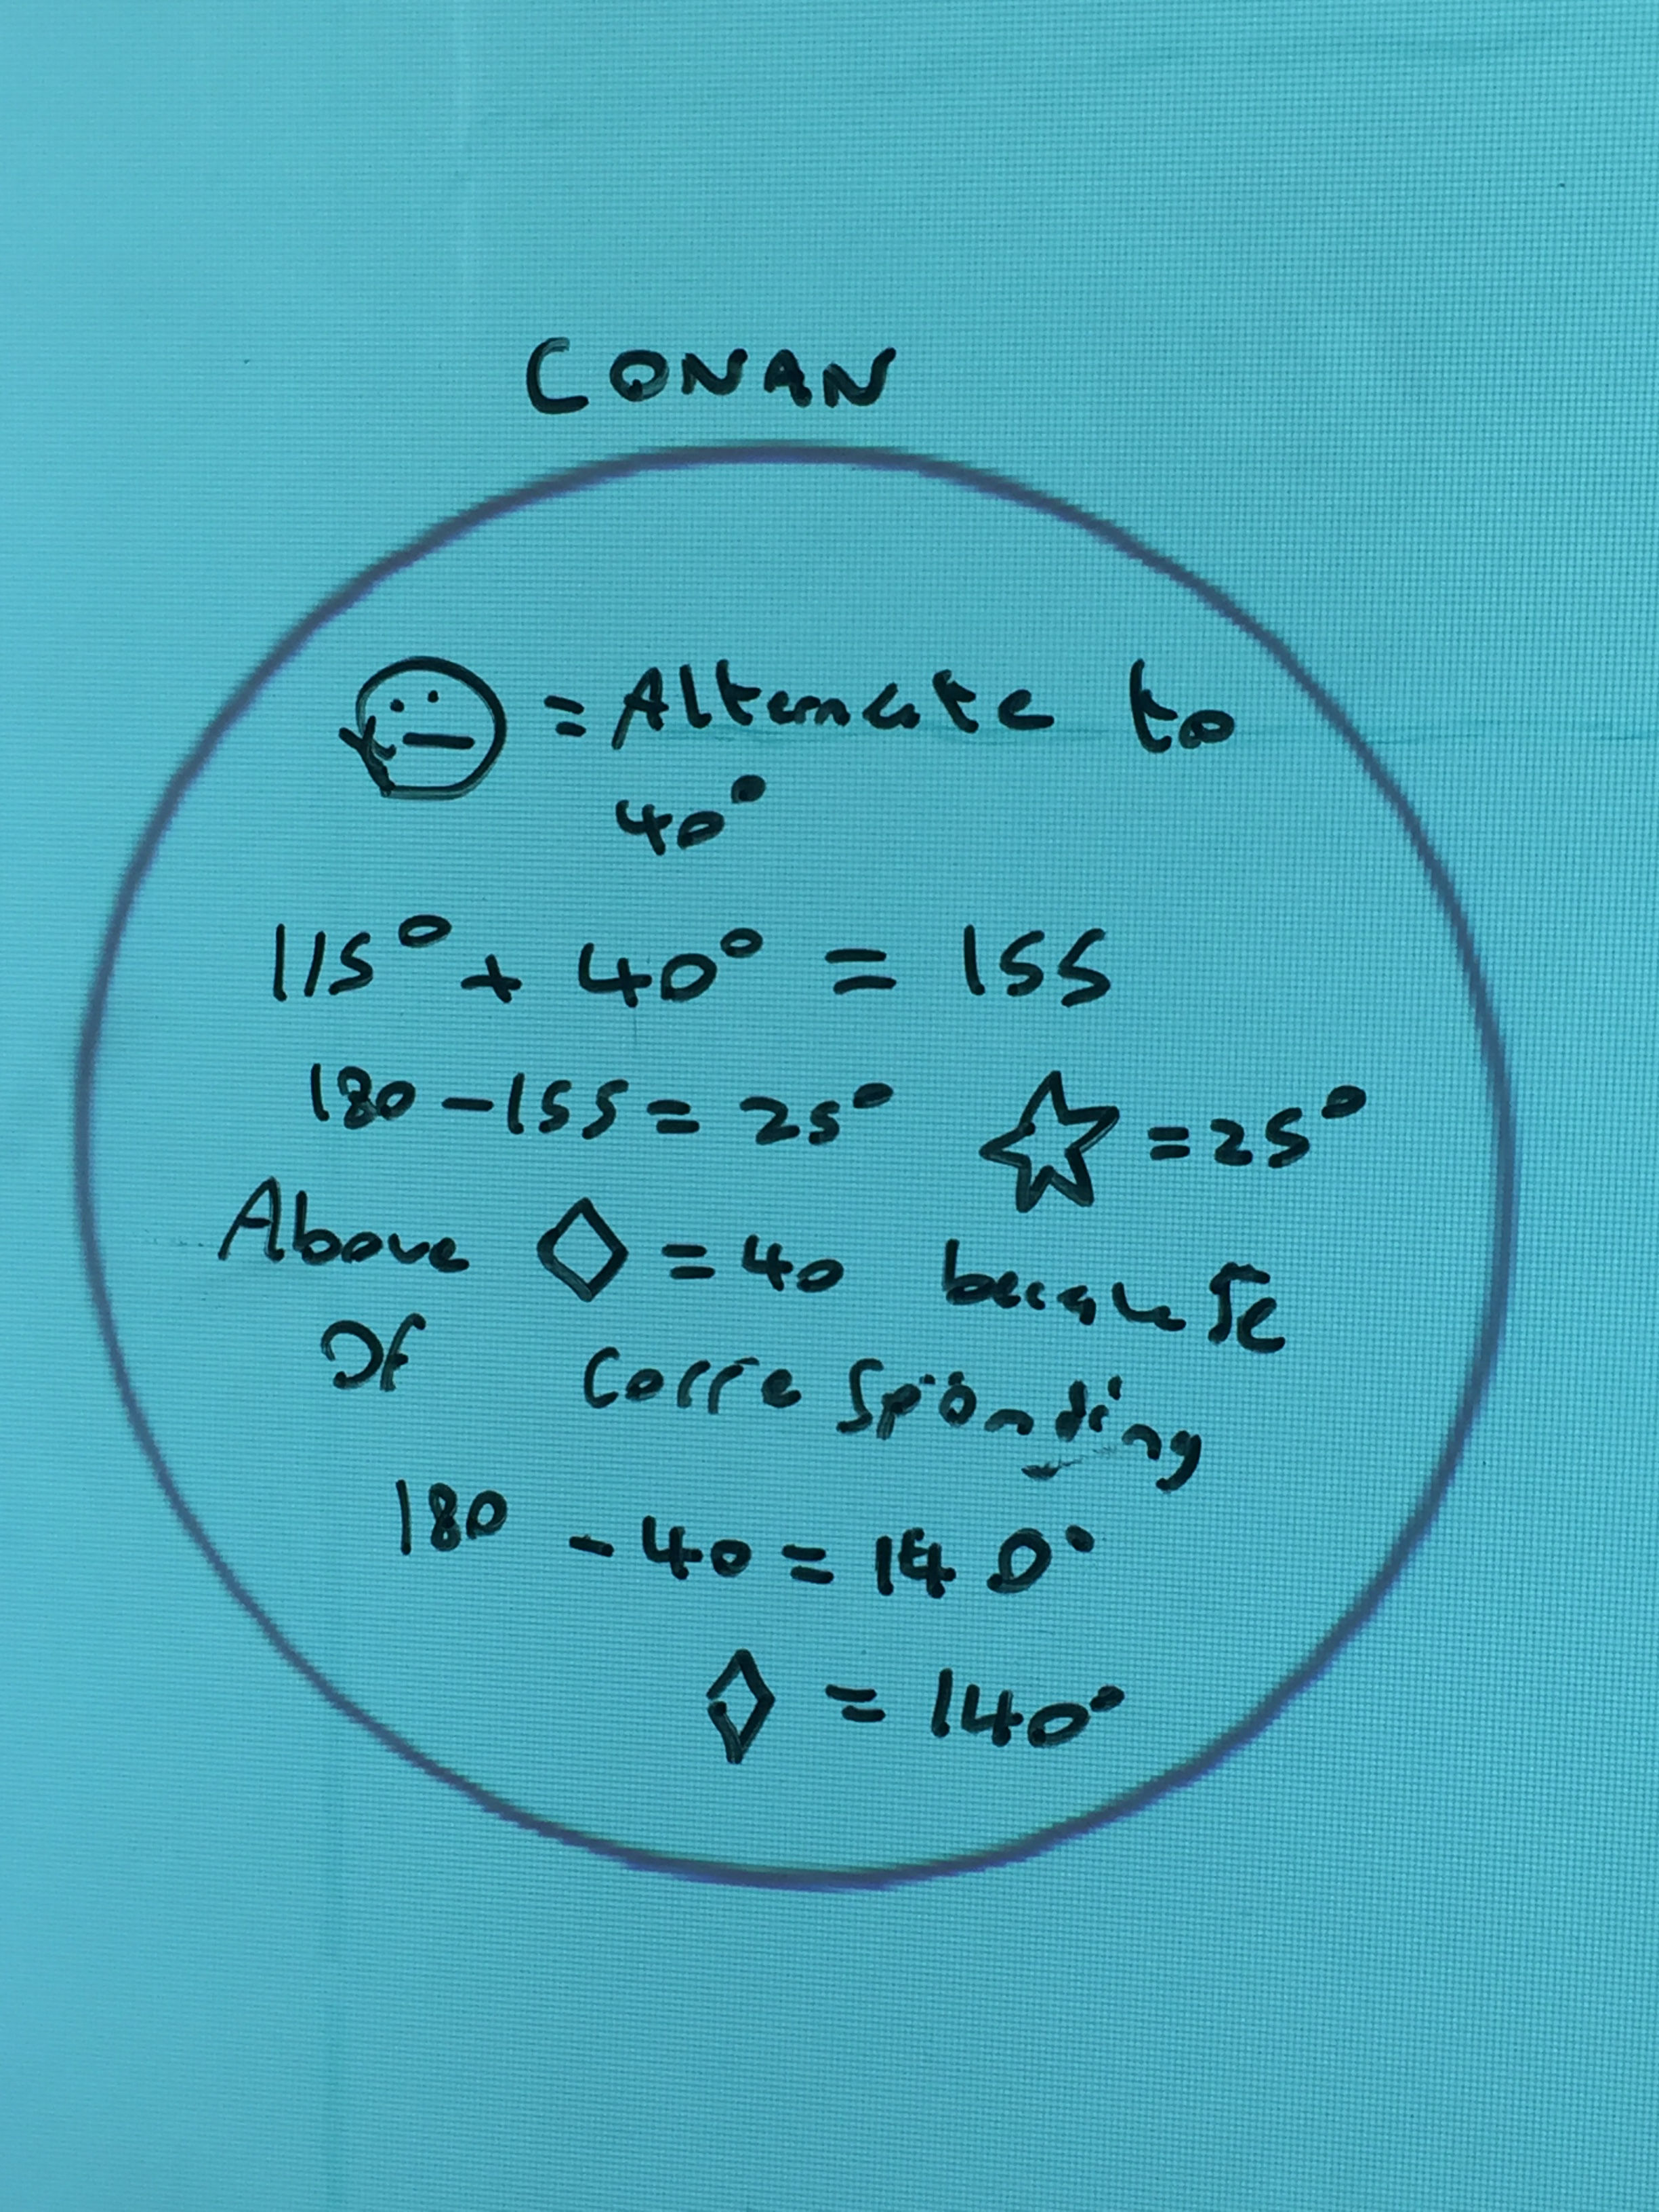 CONAN
= Alternate to
40°
115° + 40° = 155
180 - 155 = 25° ☆ = 25°
Above ◇ = 40 because
Of corresponding
180 - 40 = 140°
◇ = 140°